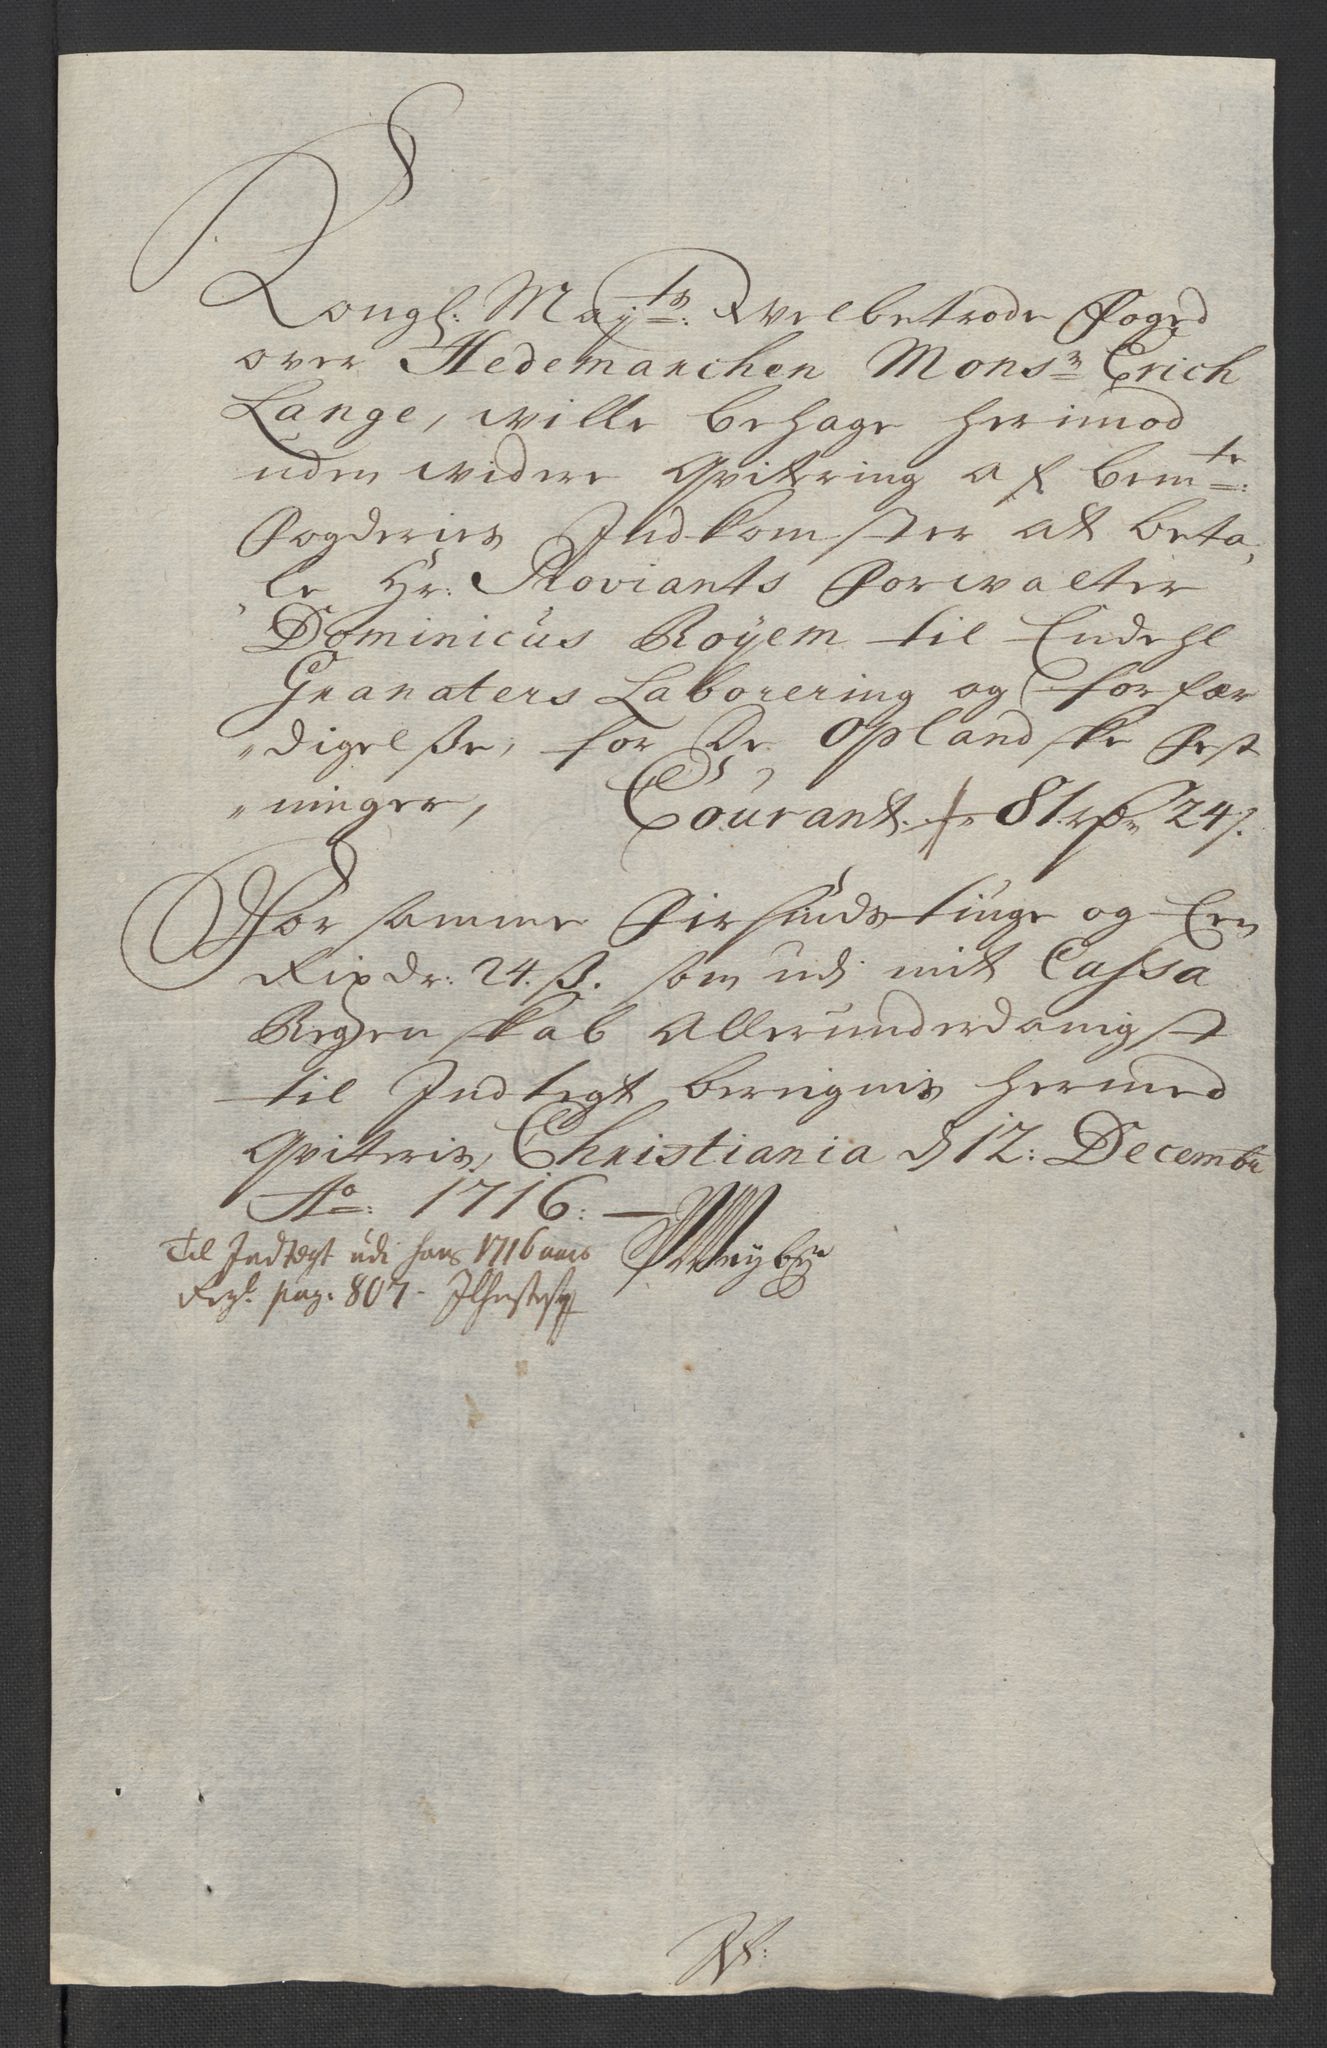 Kongl: Mayts: Welbetrode Foged
over Hedemarchen Monsr Erich
Lange, wille behage herimod
uden widere Qvitering af bemte:
Fogderies Indkomster at beta,
,le Hr: Proviants Forwalter
Dominicus Royem til Endehl
Granaters Laborering og forfær
"digelße, for De Oplandske Fest
"ninger, Courant 81 rdr 24 s.
For samme Firsindstiuge og Een
Rixdr: 24. ß. som udi mit Cassa
Regenskab Allerunderdanigst
til Indtegt beregnis hermed
Qviteris, Christiania d 12: Decembr
Ao: 1716:
Til Indtegt udi hans 1716 aars
Regl. pag. 807